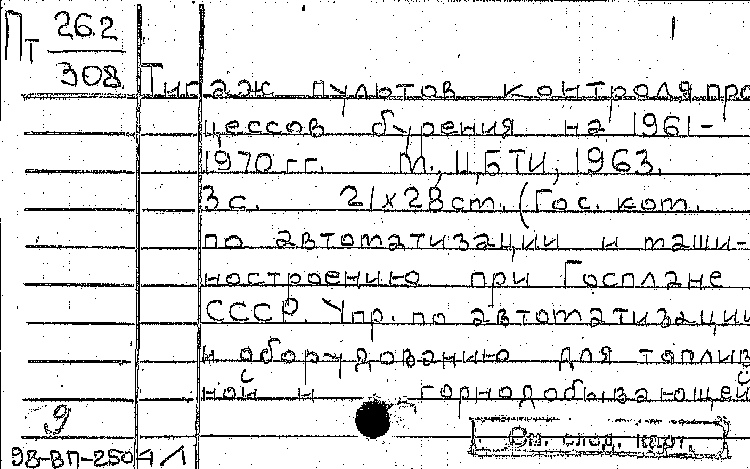 Пт 262
308
1
Типаж пультов контроля про
цессов бурения на 1961-
1970 гг. М., ЦБТИ, 1963.
3 с. 21x28 cm. (Гос. ком.
по автоматизации и маши-
ностроению при Госплане
СССР. Упр. по автоматизации
и оборудованию для топлив
ной и горнодобывающей
9
См. след. карт.
9В-ВП-2504/1